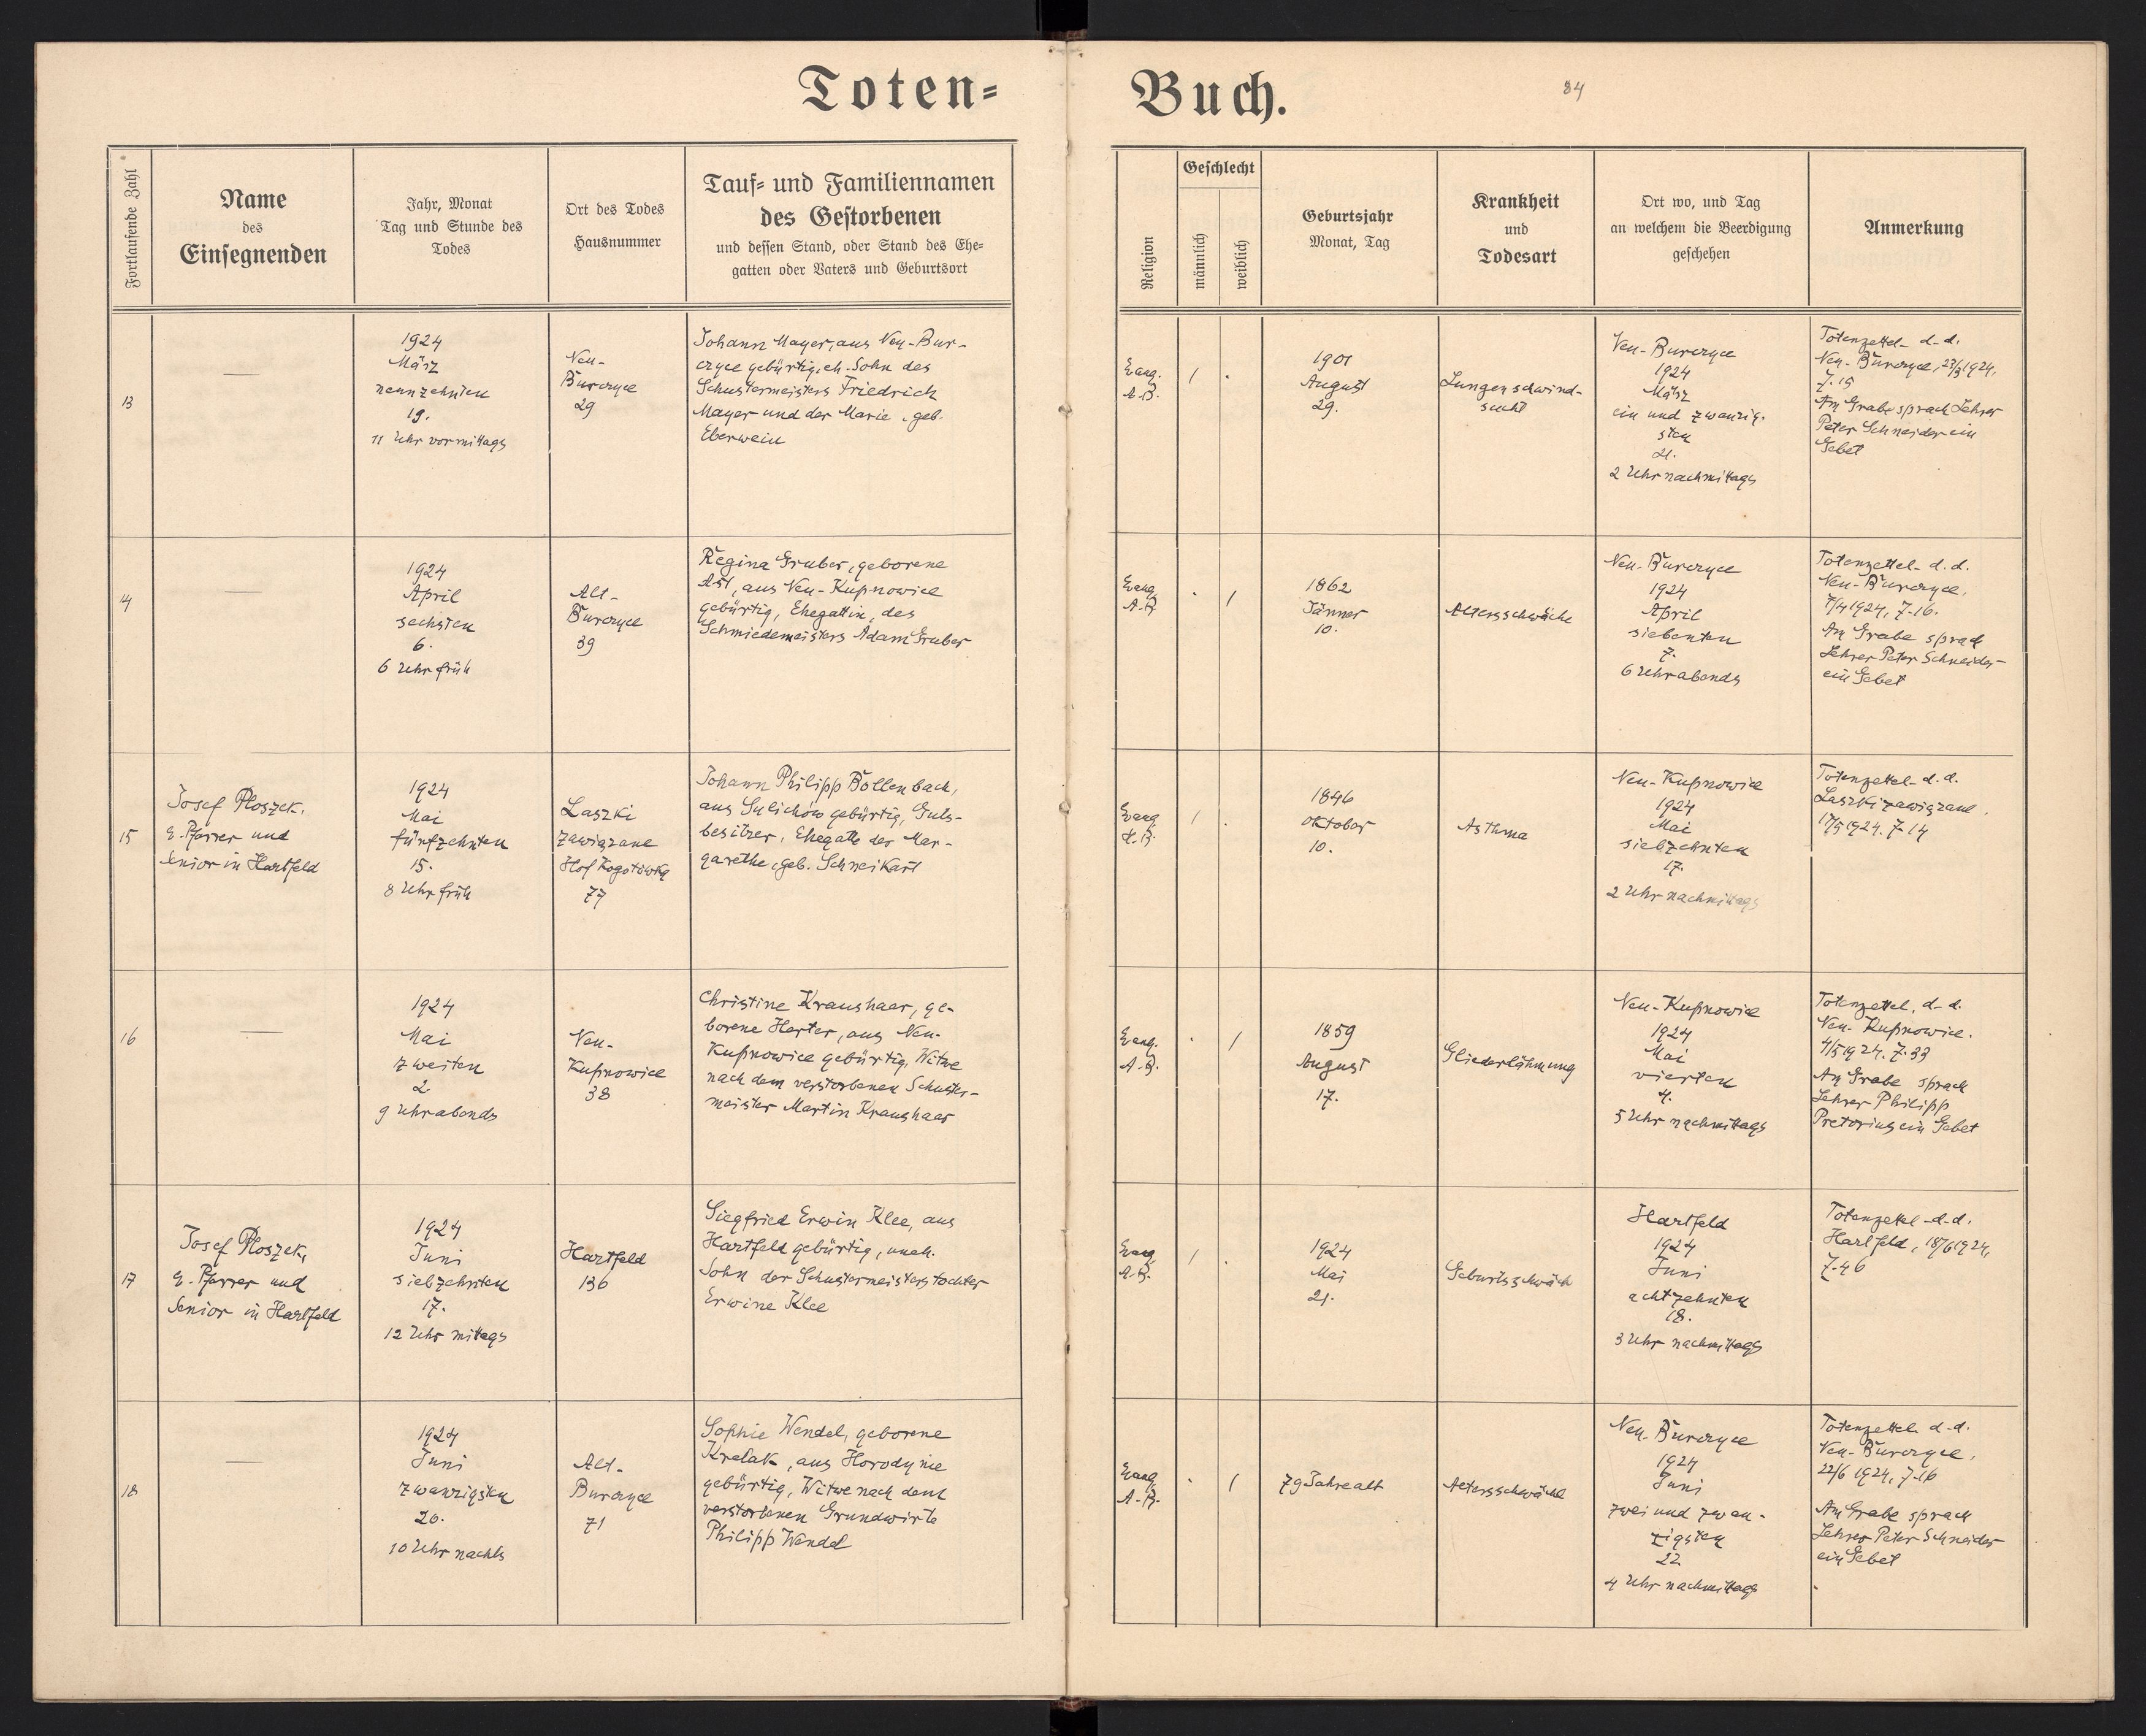 Toten=
Buch.
84
Fortlaufende Zahl
Name
des
Einsegnenden
Jahr, Monat
Tag und Stunde des
Todes
Ort des Todes
Hausnummer
Tauf= und Familiennamen
des Gestorbenen
und dessen Stand, oder Stand des Ehe=
gatten oder Vaters und Geburtsort
Religion
Geschlecht
männlich
weiblich
Geburtsjahr
Monat, Tag
Krankheit
und
Todesart
Ort wo, und Tag
an welchem die Beerdigung
geschehen
Anmerkung
13
—
1924
März
neunzehnten
19.
11 Uhr vormittags
Neu-
Burczyce
29
Johann Mayer, aus Neu-Bur-
czyce gebürtig, eh. Sohn des
Schustermeisters Friedrich
Mayer und der Marie, geb.
Eberwein
Evang.
A.B.
1
.
1901
August
29.
Lungenschwind-
sucht
Neu-Burczyce
1924
März
ein und zwanzig-
sten
21.
2 Uhr nachmittags
Totenzettel d. d.
Neu-Burczyce, 23/3 1924,
Z. 15
Am Grabe sprach Lehrer
Peter Schneider ein
Gebet
14
—
1924
April
sechsten
6.
6 Uhr früh
Alt-
Burczyce
39
Regina Gruber, geborene
Ast, aus Neu-Kupnowice
gebürtig, Ehegattin des
Schmiedemeisters Adam Gruber
Evang.
A.B.
.
1
1862
Jänner
10.
Altersschwäche
Neu-Burczyce
1924
April
siebenten
7.
6 Uhr abends
Totenzettel d. d.
Neu-Burczyce,
7/4 1924, Z. 16.
Am Grabe sprach
Lehrer Peter Schneider
ein Gebet
15
Josef Ploszek,
E. Pfarrer und
Senior in Hartfeld
1924
Mai
fünfzehnten
15.
8 Uhr früh
Laszki
zawiązane
Hof Rogotówka
77
Johann Philipp Bollenbach,
aus Sulichów gebürtig, Guts-
besitzer, Ehegatte der Mar-
garethe, geb. Schneikart
Evang.
H.B.
1
.
1846
Oktober
10.
Asthma
Neu-Kupnowice
1924
Mai
siebzehnten
17.
2 Uhr nachmittags
Totenzettel d. d.
Laszki zawiązane,
17/5 1924. Z. 14
16
—
1924
Mai
zweiten
2.
9 Uhr abends
Neu-
Kupnowice
38
Christine Kraushaar, ge-
borene Harter, aus Neu-
Kupnowice gebürtig, Witwe
nach dem verstorbenen Schuster-
meister Martin Kraushaar
Evang.
A.B.
.
1
1859
August
17.
Gliederlähmung
Neu-Kupnowice
1924
Mai
vierten
4.
5 Uhr nachmittags
Totenzettel, d. d.
Neu-Kupnowice.
4/5 1924. Z. 33
Am Grabe sprach
Lehrer Philipp
Pretorius ein Gebet
17
Josef Ploszek,
E. Pfarrer und
Senior in Hartfeld
1924
Juni
siebzehnten
17.
12 Uhr mittags
Hartfeld
136
Siegfried Erwin Klee, aus
Hartfeld gebürtig, uneh.
Sohn der Schustermeisterstochter
Erwine Klee
Evang.
A.B.
1
.
1924
Mai
21.
Geburtsschwäch
Hartfeld
1924
Juni
achtzehnten
18.
3 Uhr nachmittags
Totenzettel d. d.
Hartfeld, 18/6 1924,
Z. 46
18
—
1924
Juni
zwanzigsten
20.
10 Uhr nachts
Alt-
Burczyce
71
Sophie Wendel, geborene
Krelak, aus Horodynie
gebürtig, Witwe nach dem
verstorbenen Grundwirte
Philipp Wendel
Evang.
A.B.
.
1
79 Jahre alt
Altersschwäche
Neu-Burczyce
1924
Juni
zwei und zwan-
zigsten
22
4 Uhr nachmittags
Totenzettel d. d.
Neu-Burczyce,
22/6 1924, Z. 16
Am Grabe sprach
Lehrer Peter Schneider
ein Gebet